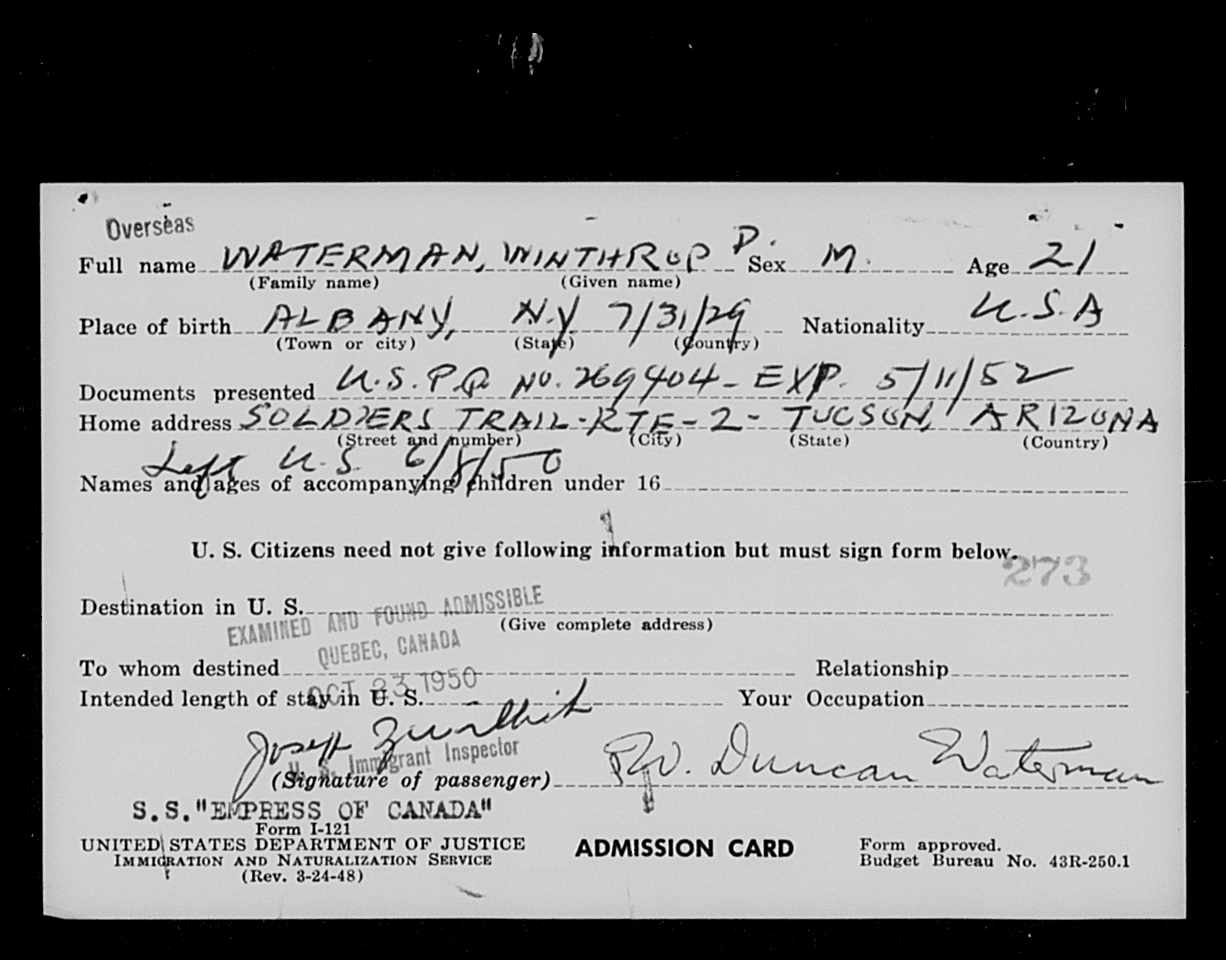 Overseas
Full name WATERMAN, WINTHROP D. Sex M. Age 21
(Family name) (Given name)
Place of birth ALBANY, N.Y. 7/31/29 Nationality U.S.A
(Town or city) (State) (Country)
Documents presented U.S.P.P. NO. 269404 - EXP. 5/11/52
Home address SOLDIERS TRAIL - RTE - 2 - TUCSON, ARIZONA
(Street and number) (City) (State) (Country)
Left U.S. 6/8/50
Names and ages of accompanying children under 16
U. S. Citizens need not give following information but must sign form below.
273
Destination in U. S.
(Give complete address)
EXAMINED AND FOUND ADMISSIBLE
QUEBEC, CANADA
To whom destined Relationship
OCT 23 1950
Intended length of stay in U. S. Your Occupation
Joseph
U. S. Immigrant Inspector
(Signature of passenger) W. Duncan Waterman
S.S."EMPRESS OF CANADA"
Form I-121
UNITED STATES DEPARTMENT OF JUSTICE
IMMIGRATION AND NATURALIZATION SERVICE
(Rev. 3-24-48)
ADMISSION CARD
Form approved.
Budget Bureau No. 43R-250.1